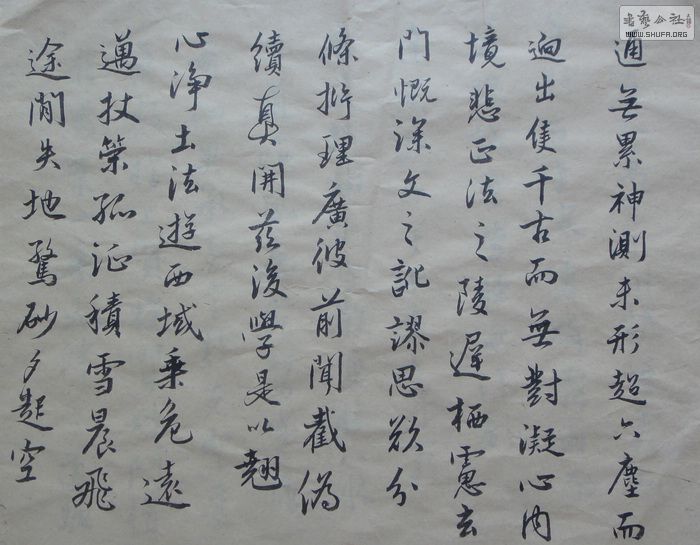 通無累神測未形超六塵而
迥出隻千古而無對凝心內
境悲正法之陵遲栖慮玄
門慨深文之訛謬思欲分
條析理廣彼前聞截偽
續真開茲後學是以翹
心淨土法遊西域乘危遠
邁杖策孤征積雪晨飛
途閒失地驚砂夕起空
書藝公社
WWW.SHUFA.ORG